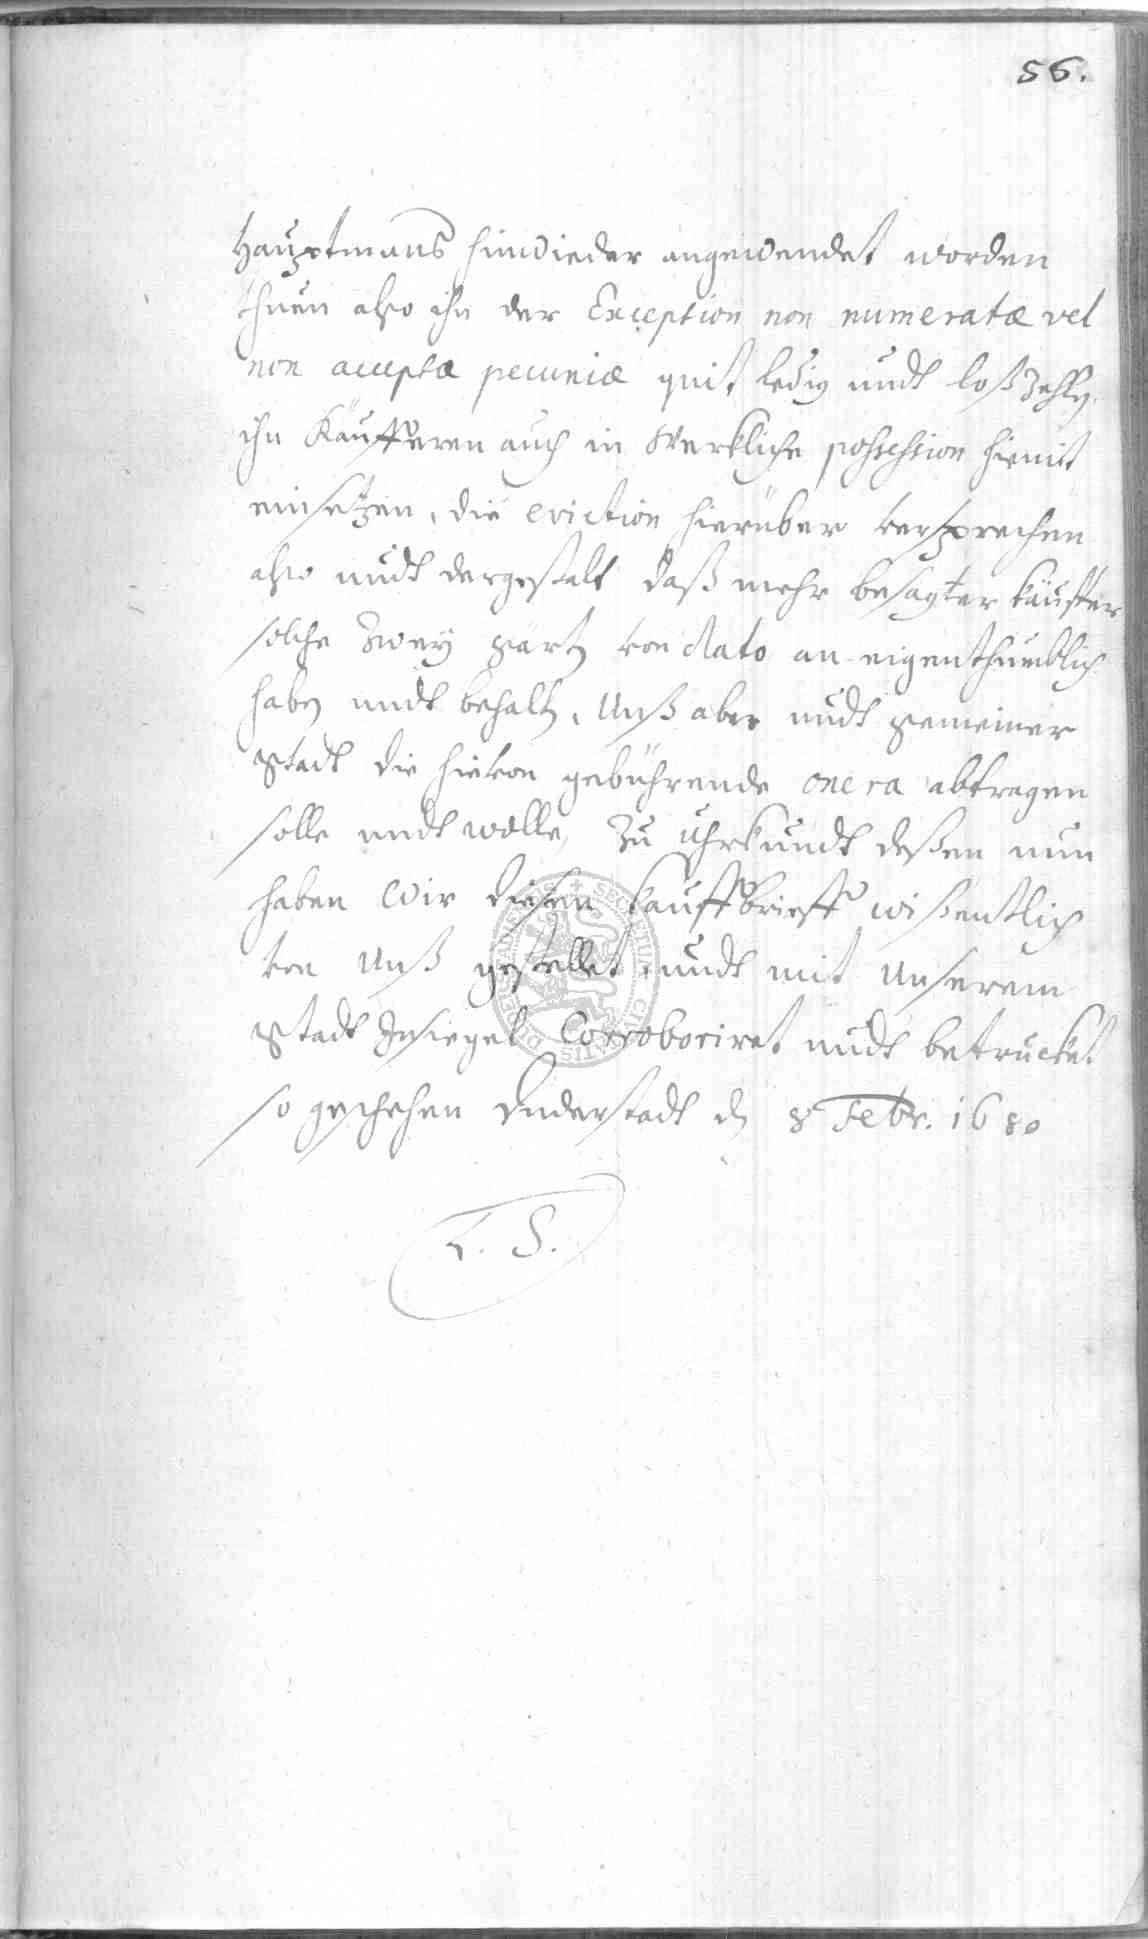 56.
Hauptmans hinwieder angewendet worden
thuen also ihn der Exception non numeratæ vel
non acceptæ pecuniæ quit ledig undt loßzehlen,
ihn Käufferen auch in Werkliche possession hiemit
einsetzen, die eviction hierüber versprechen
also undt dergestalt daß mehr besagter käuffer
solche Zwey gärten von dato an eigenthumblich
haben undt behalten, Unß aber undt gemeiner
Stadt die hievon gebührende onera abtragen
solle undt wolle, Zu Uhrkundt deßen nun
haben Wir diesen kauffbrieff wißentlich
von Unß gestellet, undt mit Unserem
Stadt Insiegel Corroboriret undt betrucket
so geschehen Duderstadt den 8 Febr. 1680
L. S.
SECRETUM CIVITATIS DUDERSTADENSIS